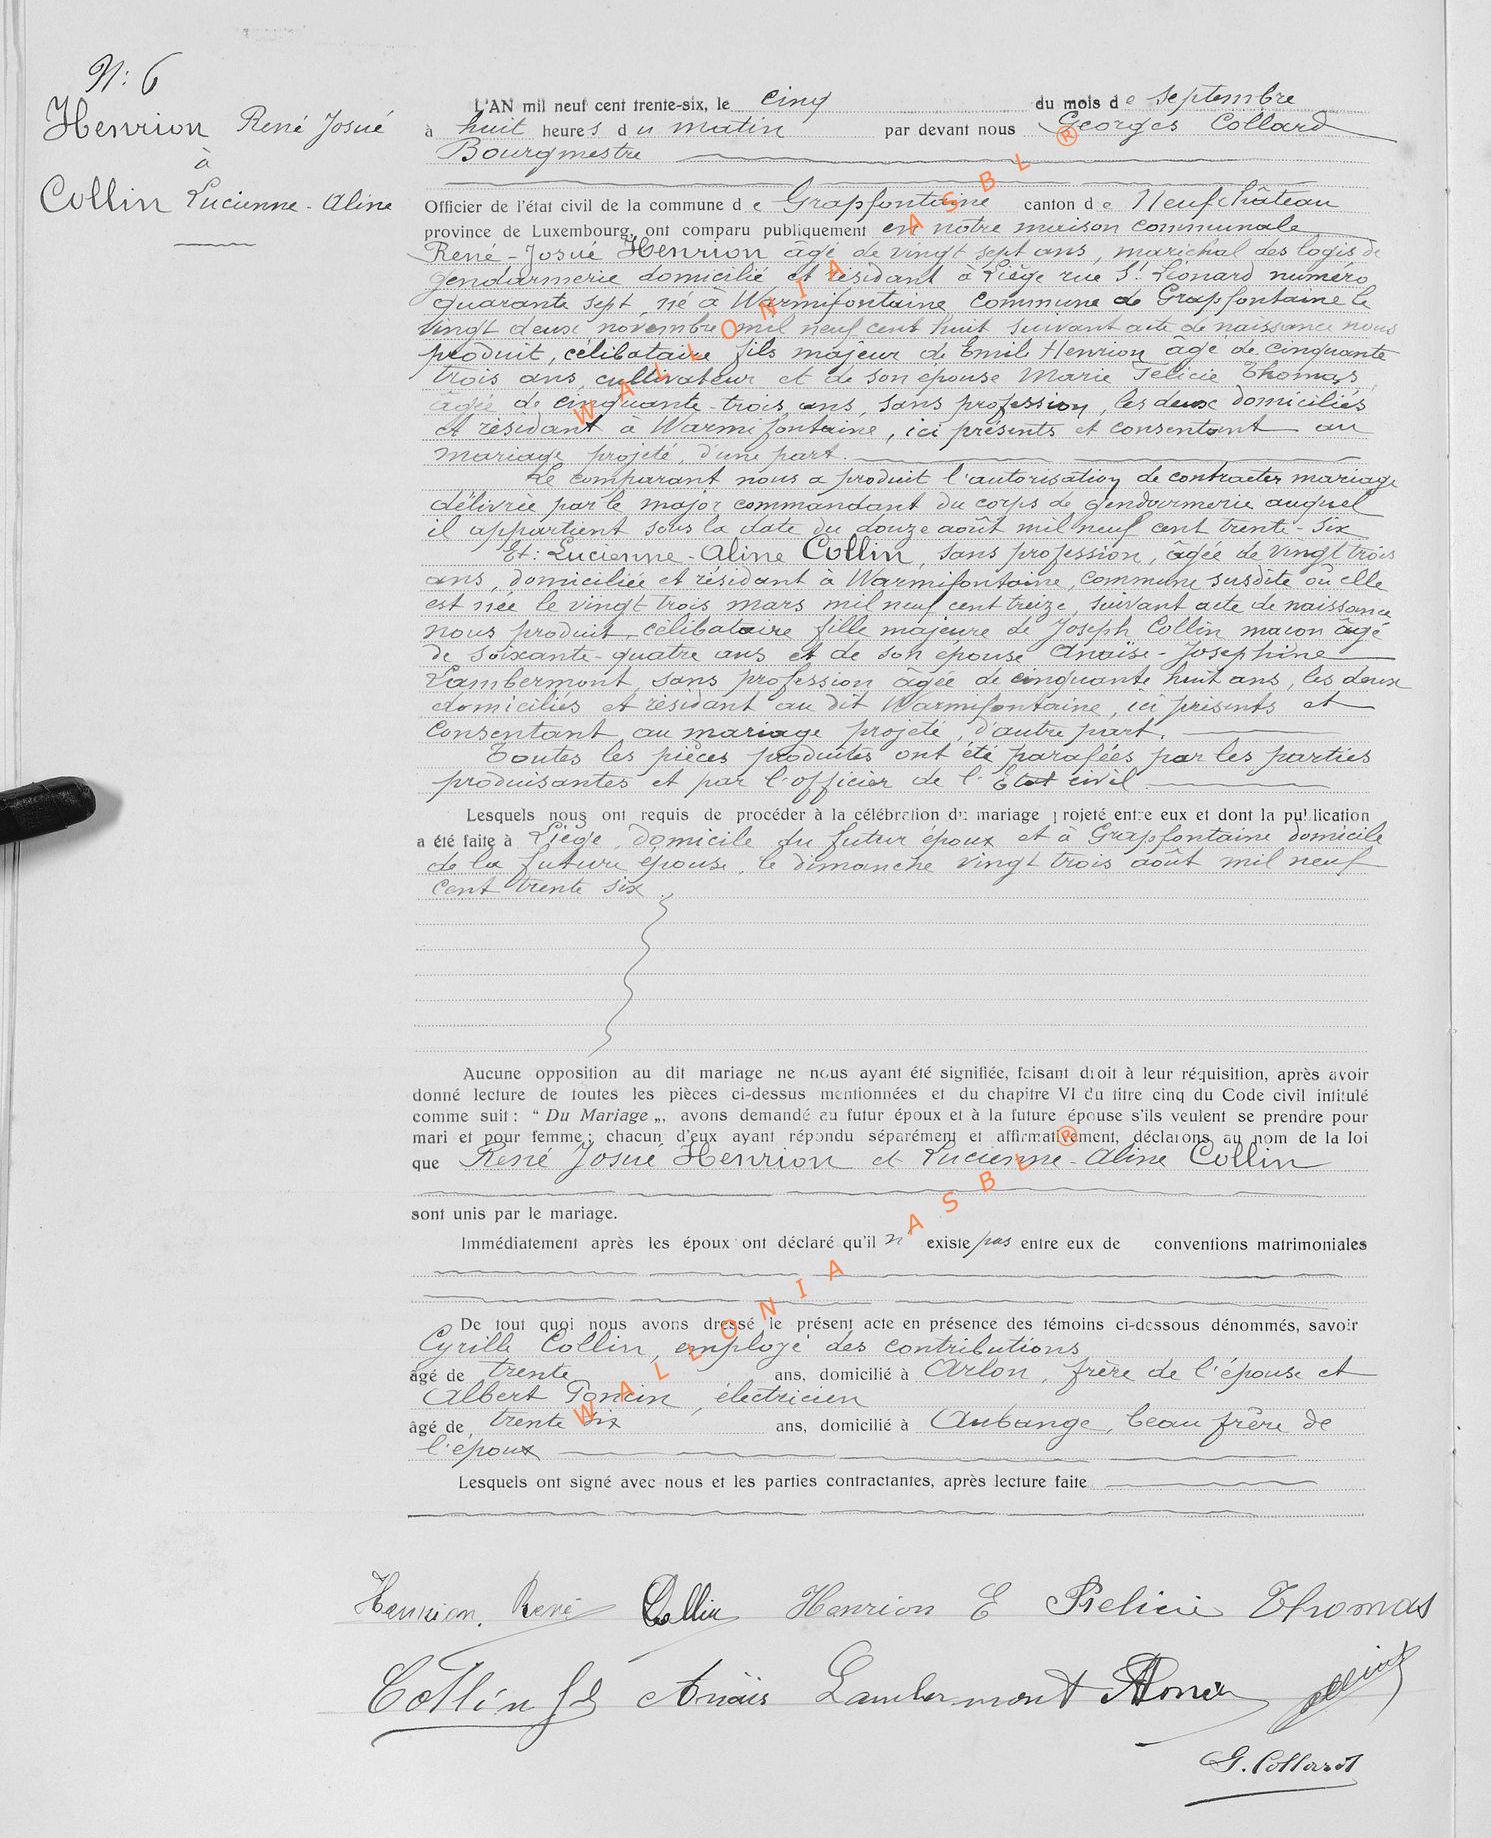 N: 6
Henrion René Josué
à
Collin Lucienne-Aline
L'AN mil neuf cent trente-six, le cinq du mois de septembre
à huit heures du matin par devant nous Georges Collard
Bourgmestre
Officier de l'état civil de la commune de Grapfontaine canton de Neufchâteau
province de Luxembourg, ont comparu publiquement en notre maison communale
René-Josué Henrion âgé de vingt sept ans, maréchal des logis de
gendarmerie domicilié et résidant à Liège rue St Léonard numéro
quarante sept né à Warmifontaine commune de Grapfontaine le
vingt deux novembre mil neuf cent huit suivant acte de naissance nous
produit, célibataire fils majeur de Emile Henrion âgé de cinquante
trois ans, cultivateur et de son épouse Marie Félicie Thomas,
âgée de cinquante-trois ans, sans profession, les deux domiciliés
et résidant à Warmifontaine, ici présents et consentant au
mariage projeté, d'une part.
Le comparant nous a produit l'autorisation de contracter mariage
délivrée par le major commandant du corps de gendarmerie auquel
il appartient sous la date du douze août mil neuf cent trente-six
Et: Lucienne-Aline Collin, sans profession, âgée de vingt trois
ans, domiciliée et résidant à Warmifontaine, commune susdite où elle
est née le vingt trois mars mil neuf cent treize, suivant acte de naissance
nous produit, célibataire fille majeure de Joseph Collin macon âgé
de soixante-quatre ans et de son épouse Anaïse-Josephine
Lambermont sans profession âgée de cinquante huit ans, les deux
domiciliés et résidant au dit Warmifontaine, ici présents et
consentant au mariage projeté, d'autre part.
Toutes les pièces produites ont été parafées par les parties
produisantes et par l'officier de l'Etat civil
Lesquels nous ont requis de procéder à la célébration du mariage projeté entre eux et dont la publication
a été faite à Liège, domicile du futur époux et à Grapfontaine domicile
de la future épouse, le dimanche vingt trois août mil neuf
cent trente six
Aucune opposition au dit mariage ne nous ayant été signifiée, faisant droit à leur réquisition, après avoir
donné lecture de toutes les pièces ci-dessus mentionnées et du chapitre VI du titre cinq du Code civil intitulé
comme suit : “ Du Mariage „, avons demandé au futur époux et à la future épouse s'ils veulent se prendre pour
mari et pour femme ; chacun d'eux ayant répondu séparément et affirmativement, déclarons au nom de la loi
que René Josué Henrion et Lucienne-Aline Collin
sont unis par le mariage.
Immédiatement après les époux ont déclaré qu'il n' existe pas entre eux de conventions matrimoniales
De tout quoi nous avons dressé le présent acte en présence des témoins ci-dessous dénommés, savoir
Cyrille Collin, employé des contributions
âgé de trente ans, domicilié à Arlon, frère de l'épouse et
Albert Poncin, électricien
âgé de trente six ans, domicilié à Aubange, beau frère de
l'époux
Lesquels ont signé avec nous et les parties contractantes, après lecture faite
Henrion René Collin Henrion E Félicie Thomas
Collin Js Anaïs Lambermont
G. Collard
WALLONIA ASBL ®
WALLONIA ASBL ®